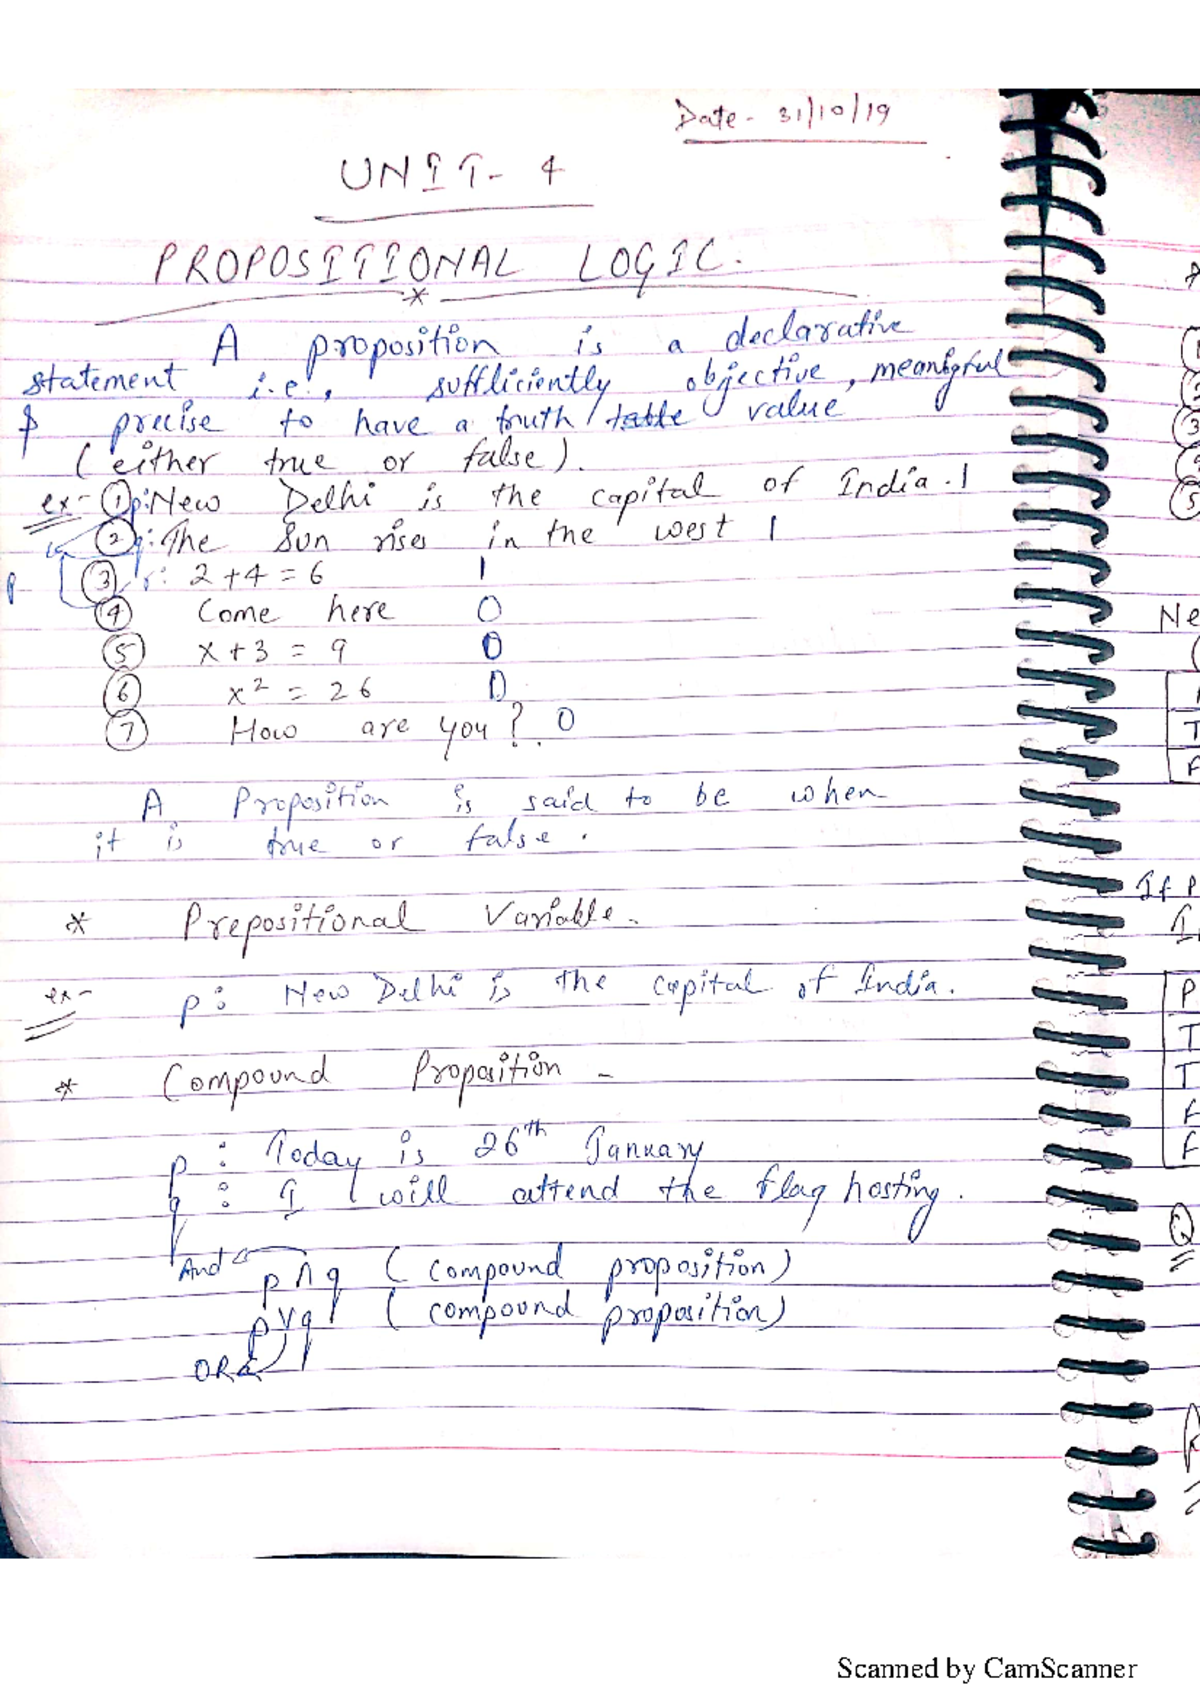 Date- 31/10/19
UNIT- 4
PROPOSITIONAL LOGIC.
*
A proposition is a declarative
statement i.e., suffliciently objective, meaningful
& precise to have a truth table value
(either true or false).
ex- ① p: New Delhi is the capital of India. 1
② q: The Sun rises in the west 1
p ③ r: 2+4 = 6 1
④ Come here 0
⑤ x+3 = 9 0
⑥ x² = 26
⑦ How are you? . 0
A Proposition is said to be when
it is true or false.
* Prepositional Variable.
ex- p: New Delhi is the capital of India.
* Compound Proposition -
p : Today is 26th January
q : I will attend the flag hosting.
And p ∧ q (compound proposition)
p ∨ q (compound proposition)
OR
Ne
T
F
If P
P
T
T
F
F
Q
Scanned by CamScanner